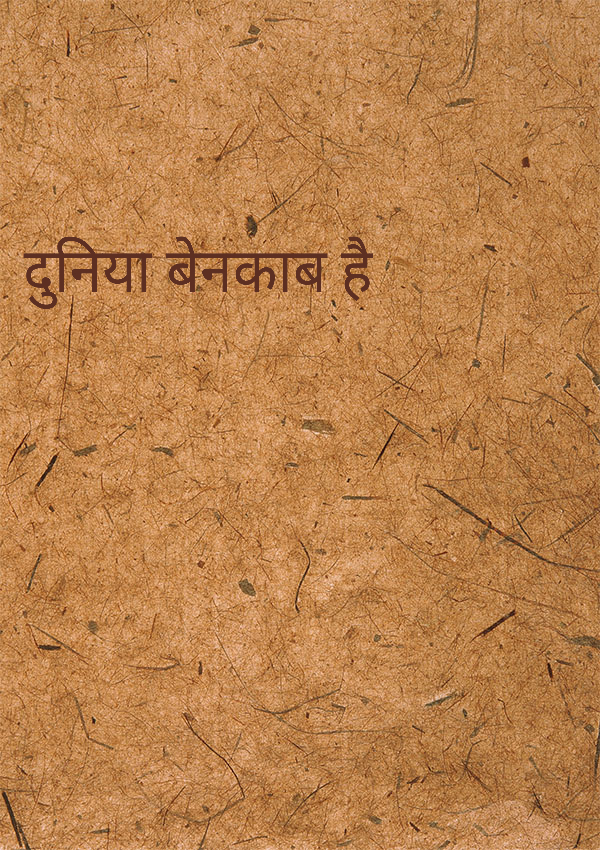 दुनिया बेनकाब है